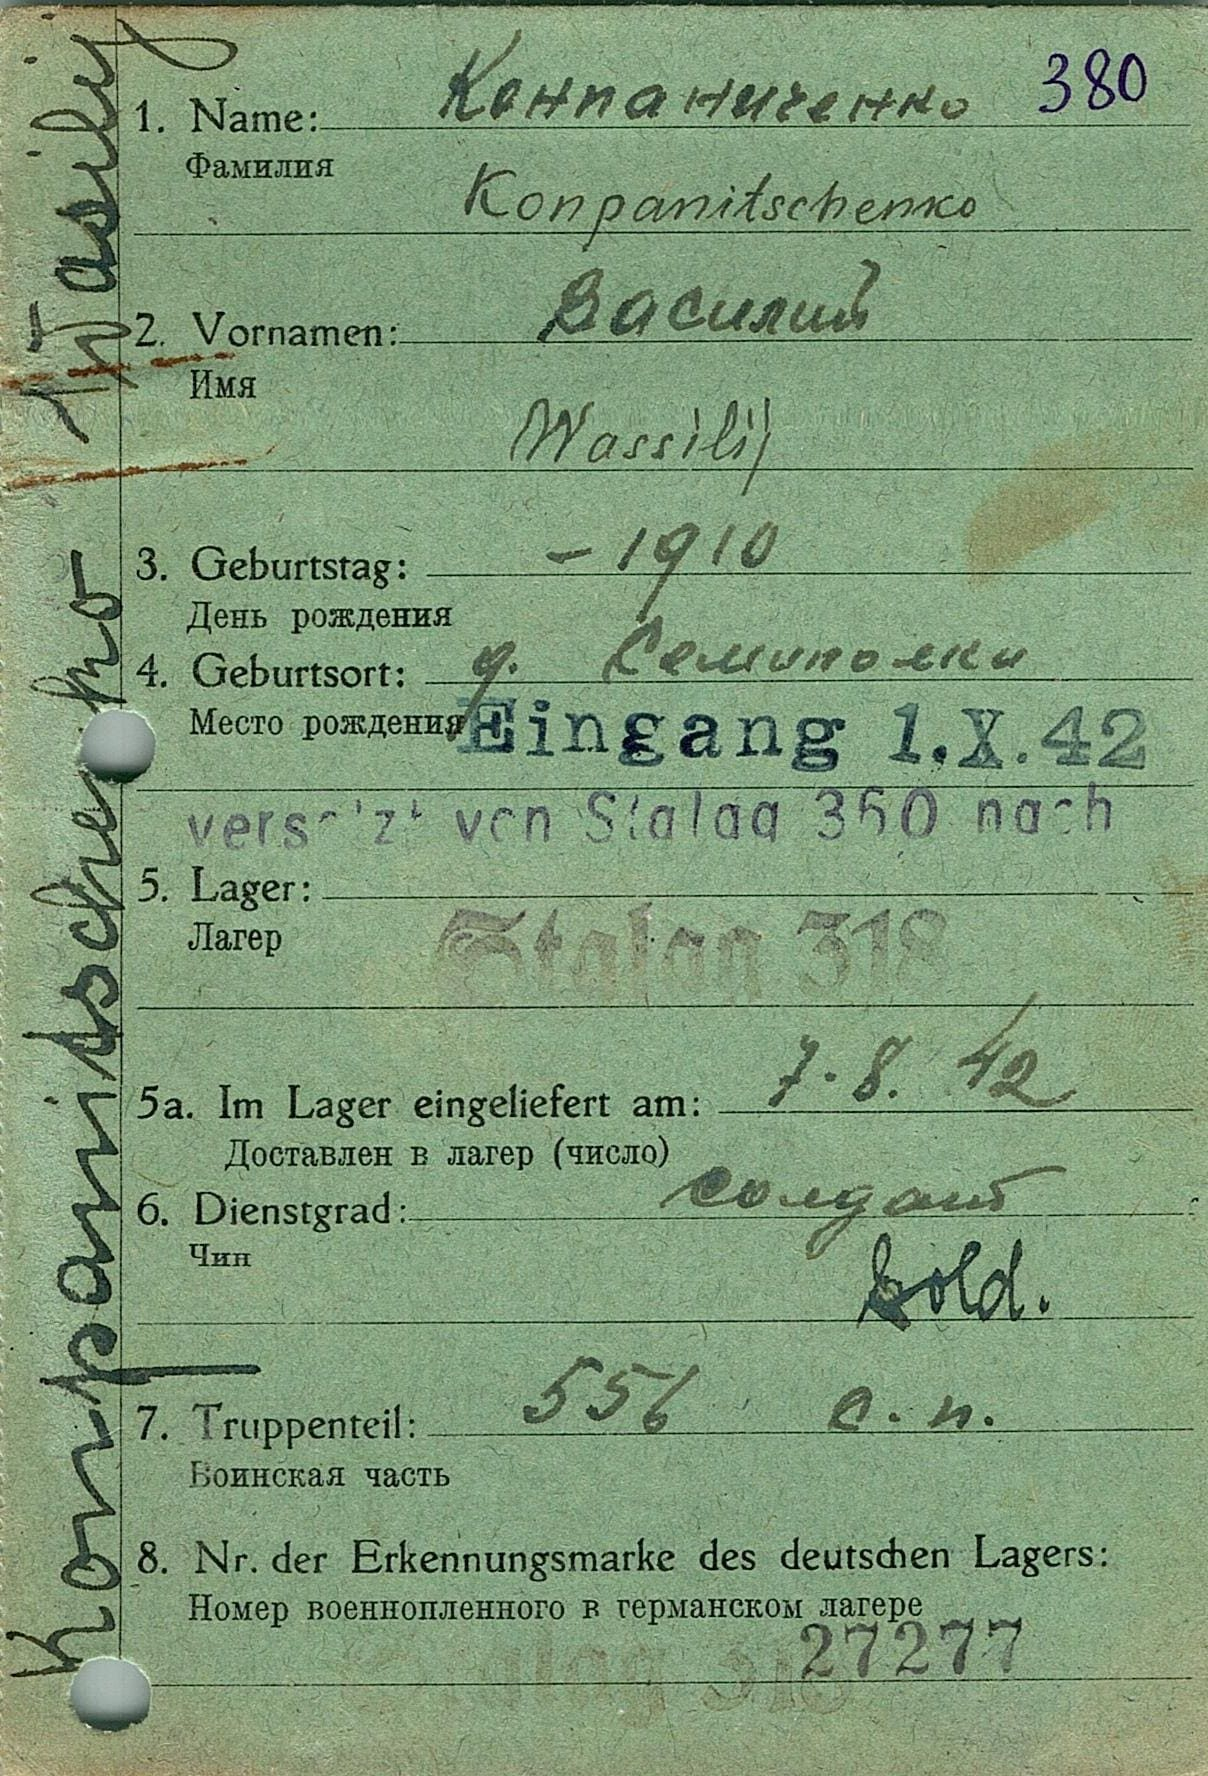 Konpanitschenko Wasilij
380
1. Name: Конпаниченко
Фамилия
Konpanitschenko
2. Vornamen: Василий
Имя
Wassilij
3. Geburtstag: – 1910
День рождения
4. Geburtsort: д. Семиполки
Место рождения
Eingang 1.X.42
versetzt von Stalag 350 nach
5. Lager:
Лагер
Stalag 318
5a. Im Lager eingeliefert am: 7.8.42
Доставлен в лагер (число)
6. Dienstgrad: солдат
Чин
Sold.
7. Truppenteil: 556 с.п.
Воинская часть
8. Nr. der Erkennungsmarke des deutschen Lagers:
Номер военнопленного в германском лагере
27277
Stalag 318